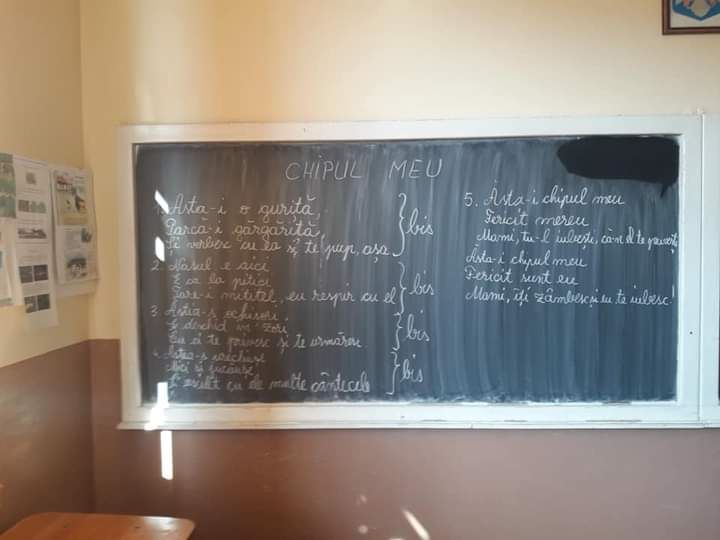 CHIPUL MEU
1. Asta-i o guriță,
Parcă-i gărgăriță,
Și vorbesc cu ea și te pup, așa } bis
2. Nasul e aici
E ca la pitici
Pare-i mititel, eu respir cu el } bis
3. Aștia-s ochișori
Îi deschid în zori
Cu ei te privesc și te urmăresc } bis
4. Astea-s urechiușe
Mici și jucăușe
Și ascult cu ele multe cântecele } bis
5. Ăsta-i chipul meu
Fericit mereu
Mami, tu-l iubești, când el te privește
Ăsta-i chipul meu
Fericit sunt eu
Mami, îți zâmbesc și eu te iubesc!